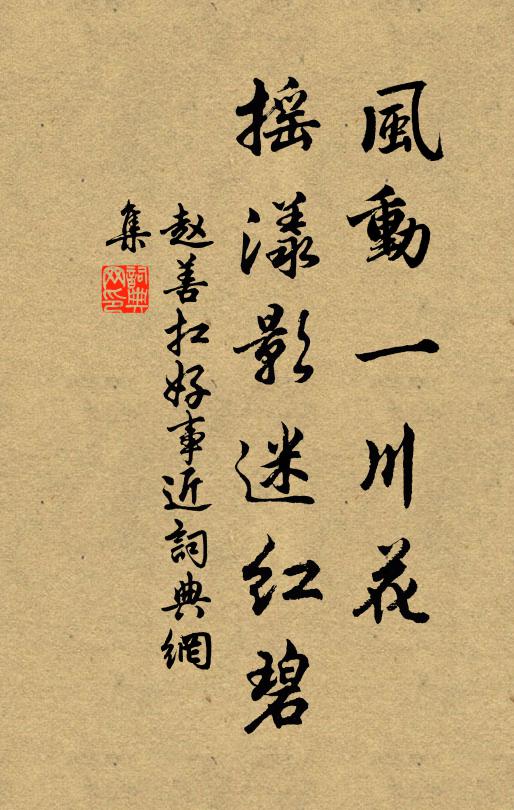 風動一川花
摇漾影迷红碧
赵善扛好事近詞典網
集
詞典
网印